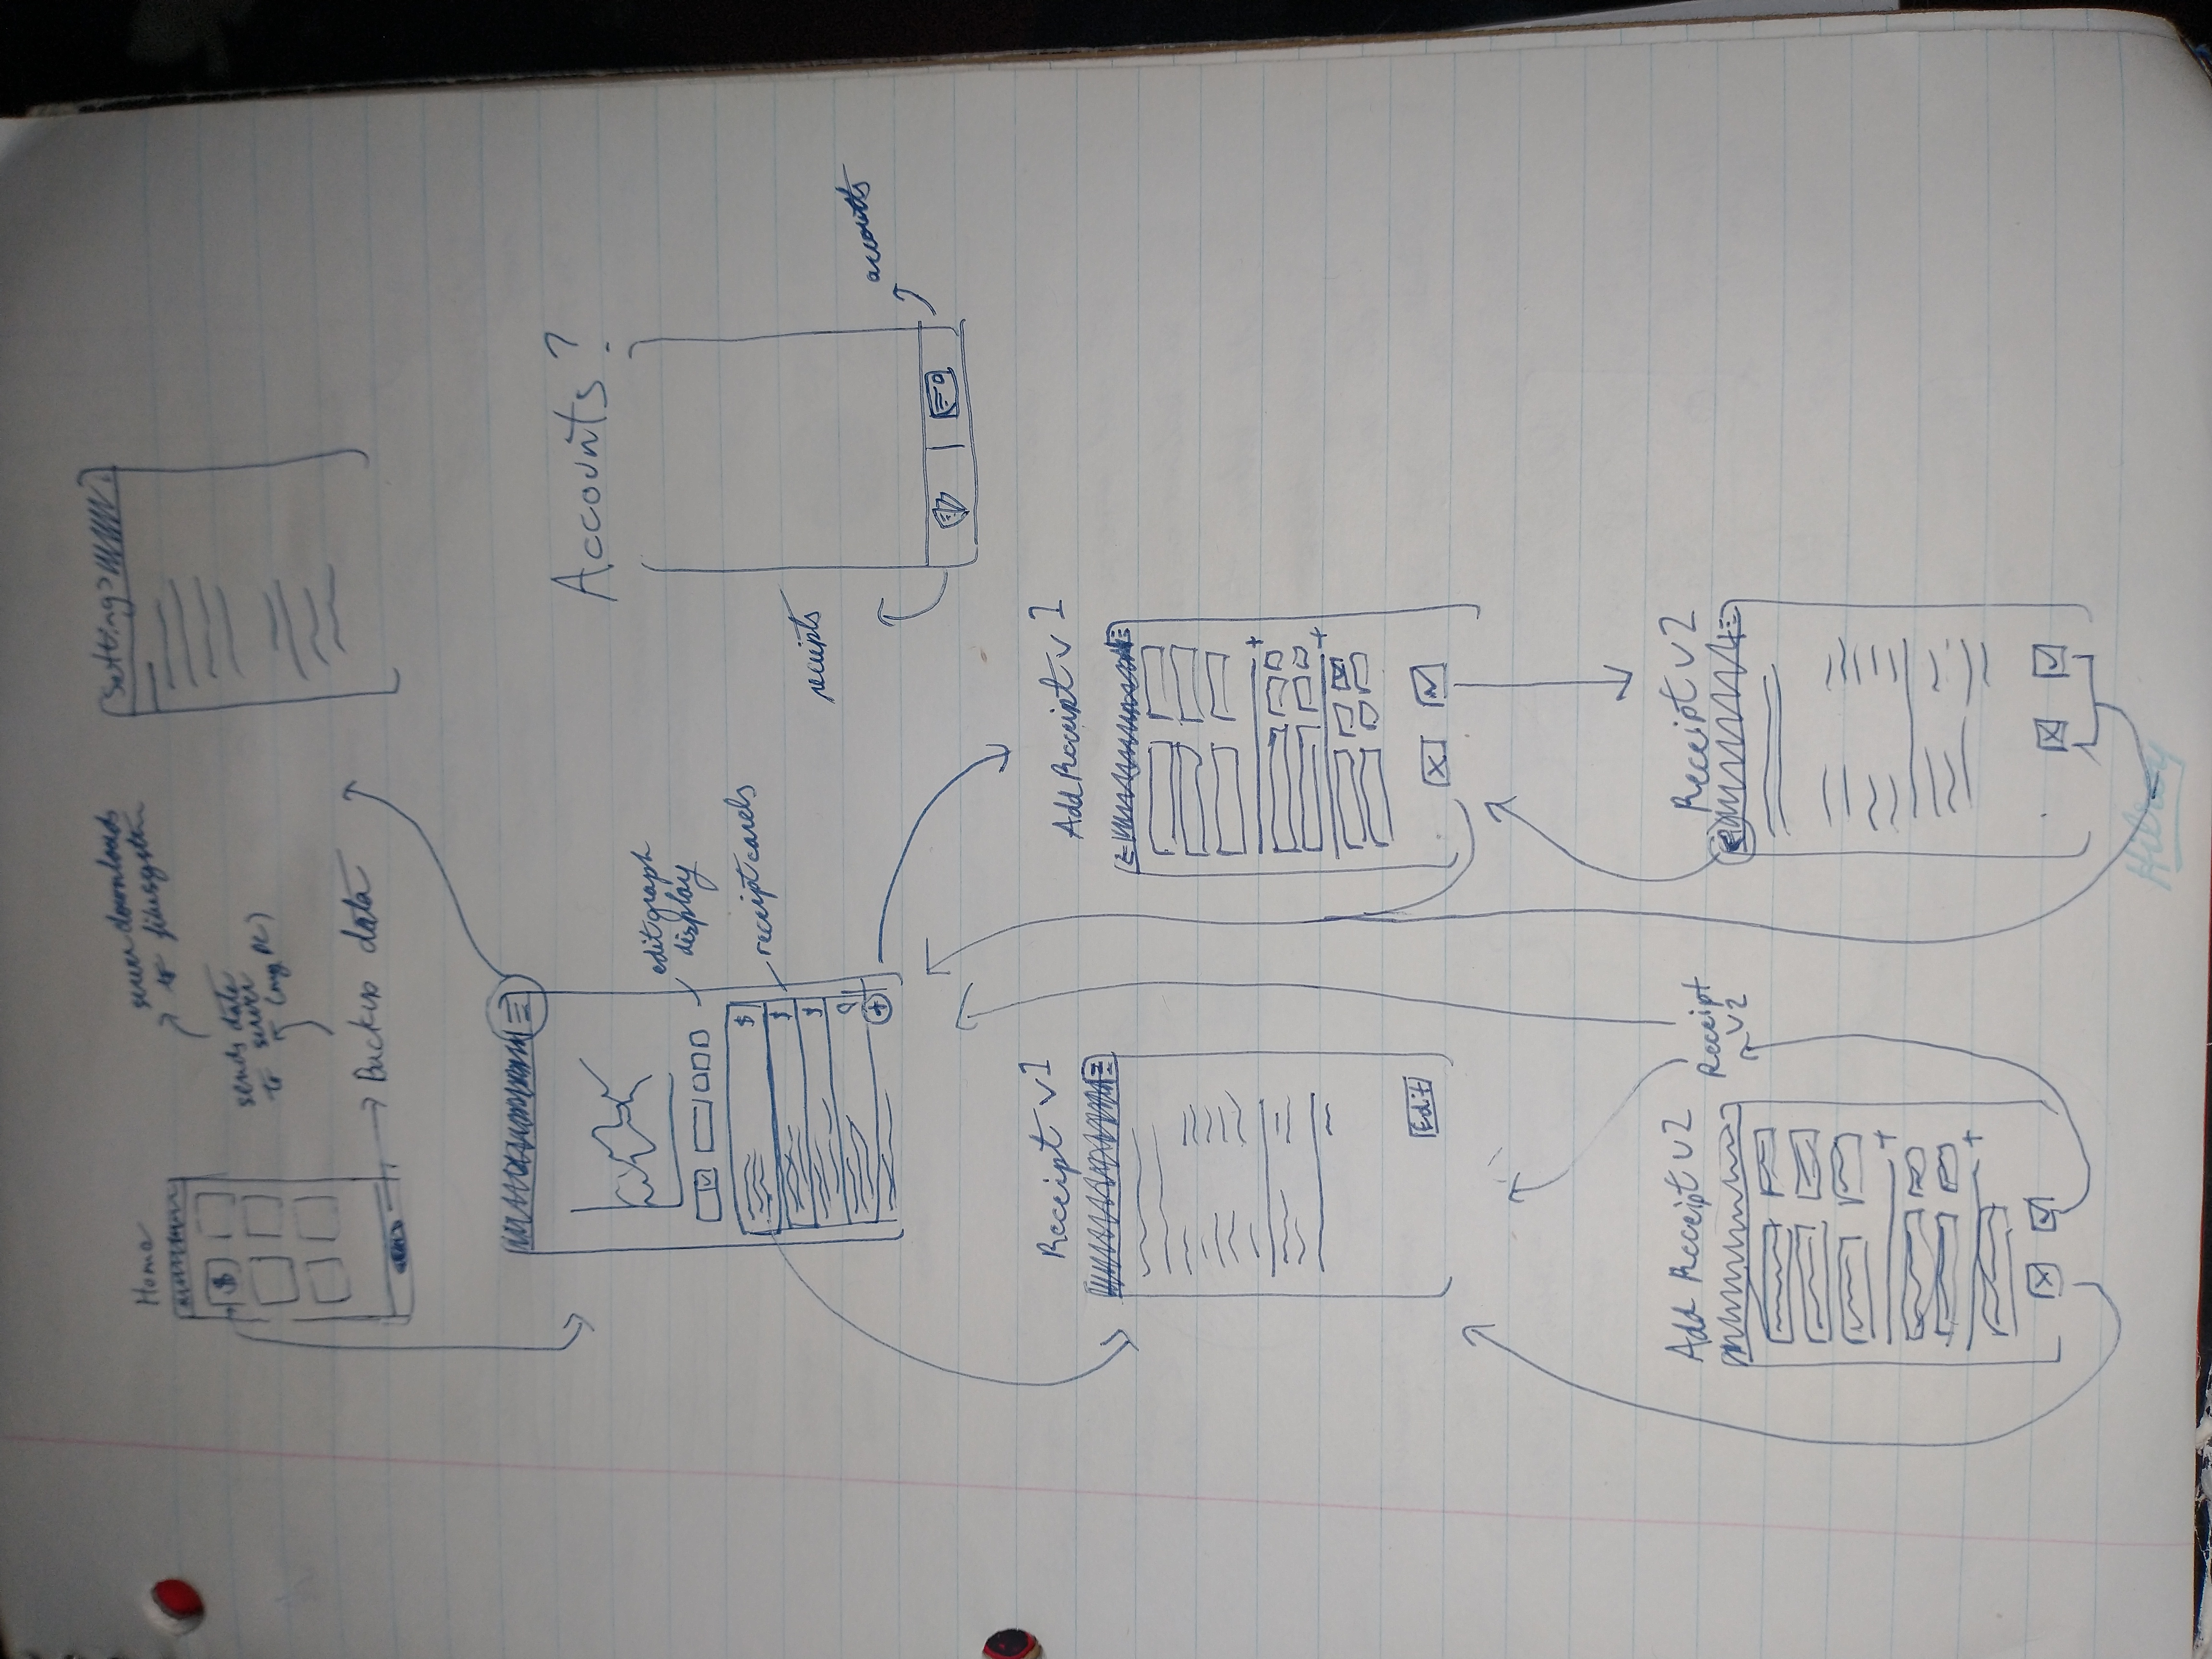 Home
$
server downloads
to filesystem
sends data
to server
(my PC)
Backup data
Settings
edit graph
display
receipt cards
$
$
$
+
Accounts?
receipts
accounts
Receipt v1
Edit
Add Receipt v1
+
+
X
Add Receipt v2
+
+
X
Receipt
v2
Receipt v2
X
Hilroy